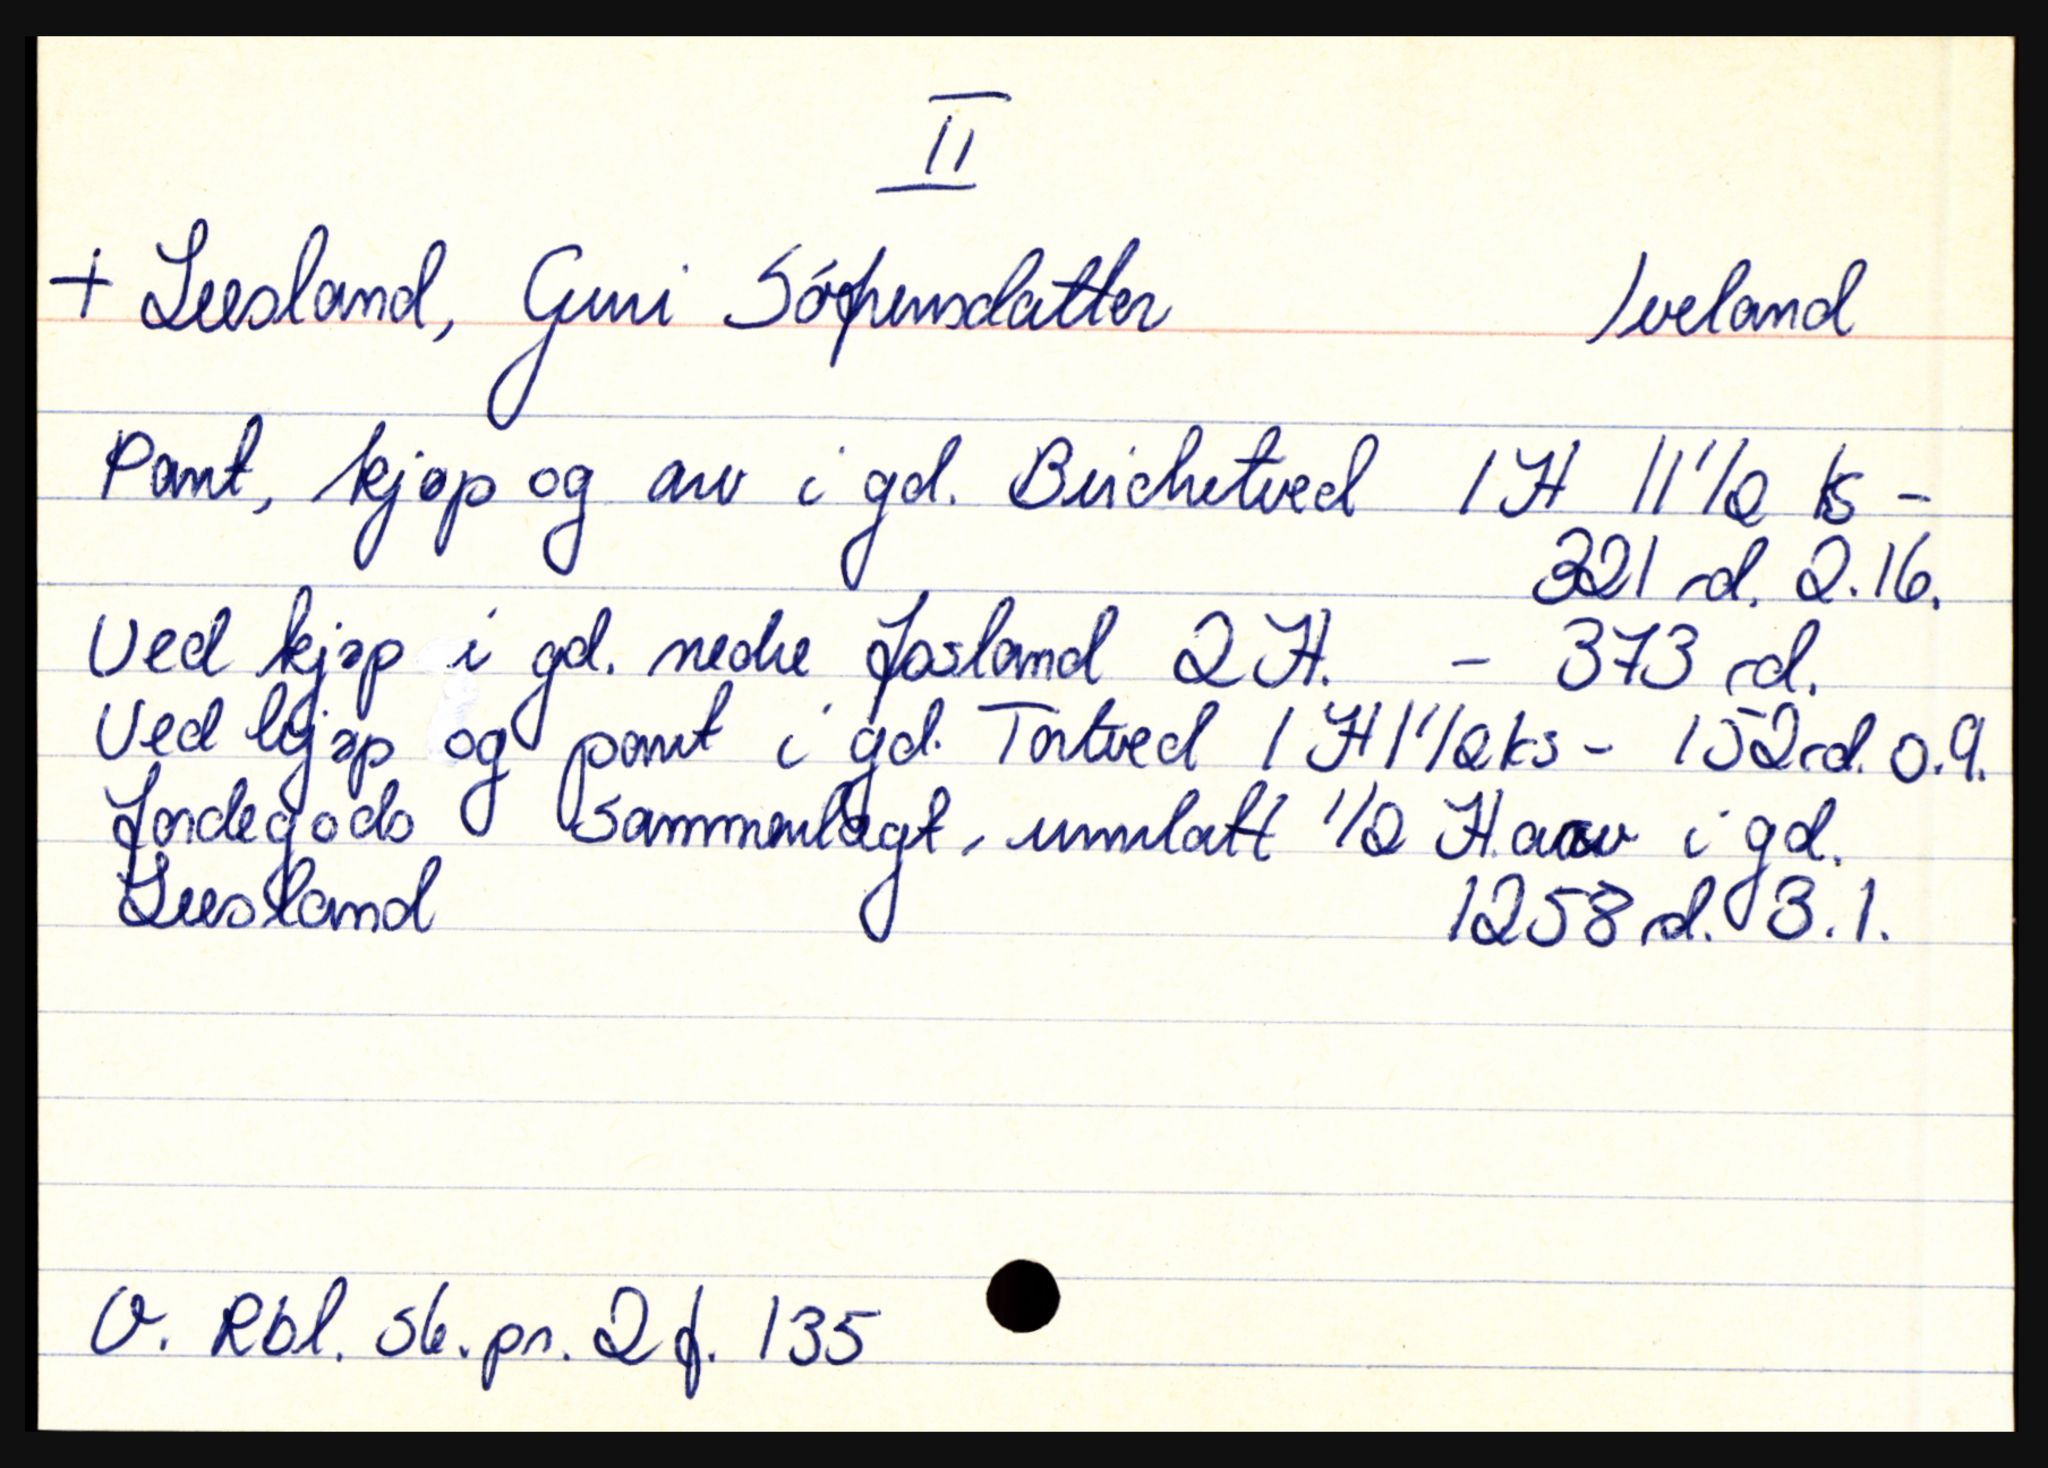 II
+ Leesland, Guri Sófrensdatter Iveland
Pant, kjøp og arv i gd. Birchetved 1 H 11 1/2 ks -
321 rd. 2.16.
Ved kjøp i gd. nedre Josland 2 H. - 373 rd.
Ved kjøp og pant i gd. Tortved 1 H 1 1/2 ks - 152 rd. 0.9.
Jordegods sammenlagt, unnlatt 1/2 H. arv i gd.
Leesland 1258 rd. 3.1.
V. Rbl. sk. pr. 2 f. 135